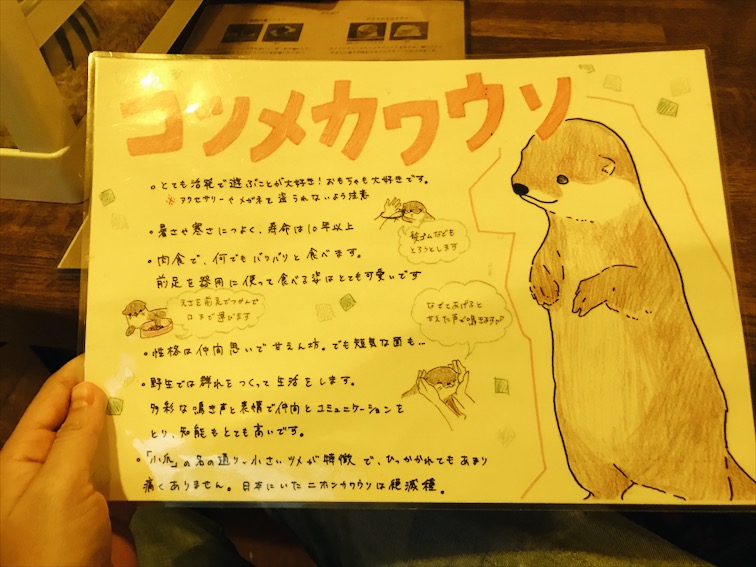 コツメカワウソ
。とても活発で遊ぶことが大好き!おもちゃも大好きです。
※アクセサリーやメガネを盗られないよう注意
。暑さや寒さにつよく、寿命は10年以上
髪ゴムなども
とろうとします
。肉食で、何でもバリバリと食べます。
前足を器用に使って食べる姿はとても可愛いです
えさを前足でつかんで
口まで運びます
なでてあげると
甘えた声で鳴きますよ♡
。性格は仲間思いで甘えん坊。でも短気な面も…
。野生では群れをつくって生活をします。
多彩な鳴き声と表情で仲間とコミュニケーションを
とり、知能もとても高いです。
。「小爪」の名の通り、小さいツメが特徴で、ひっかかれてもあまり
痛くありません。日本にいたニホンカワウソは絶滅種。